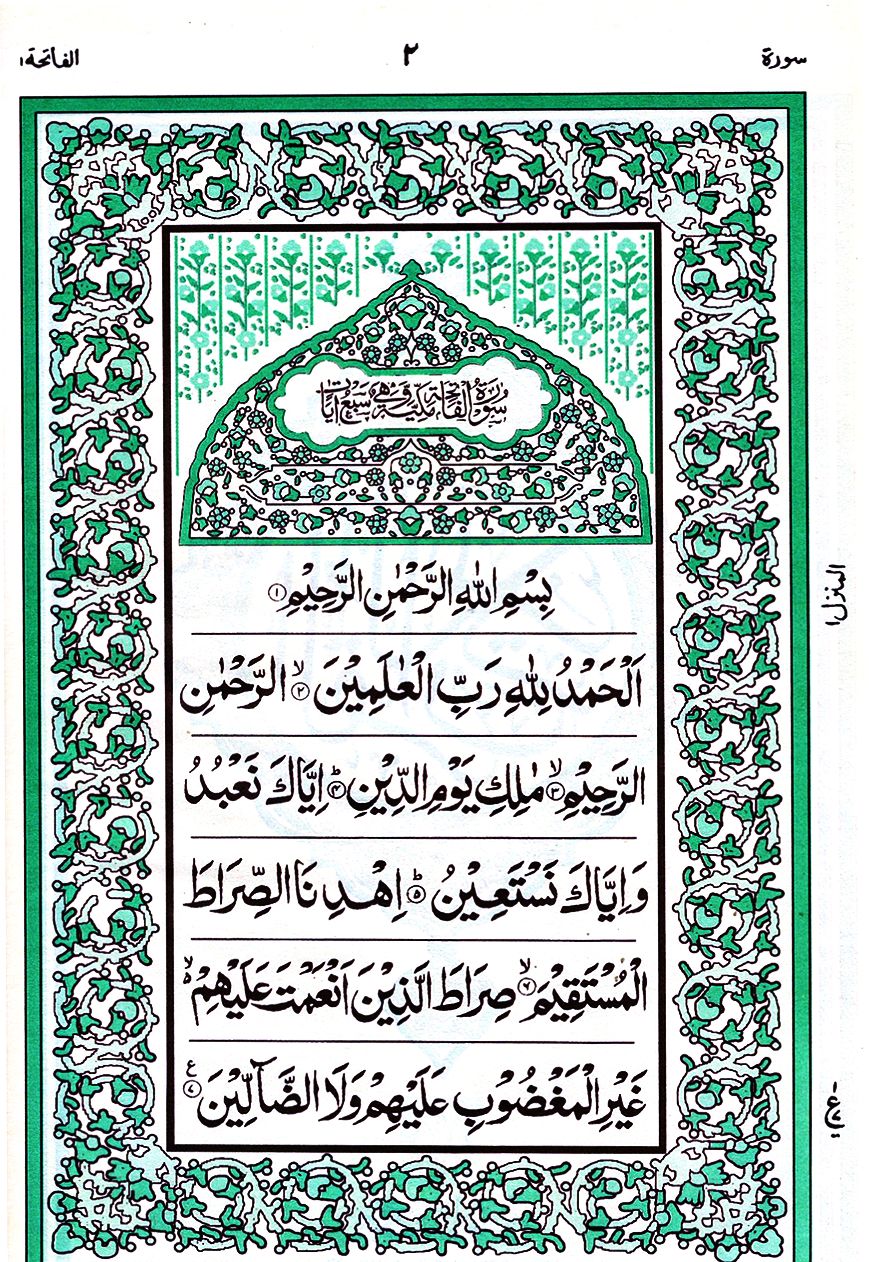 سورة ٢ الفاتحة ١
سُوْرَةُ الْفَاتِحَةِ مَكِّيَّةٌ وَّهِيَ سَبْعُ اٰيَاتٍ
بِسْمِ اللهِ الرَّحْمٰنِ الرَّحِيْمِ ۝١
اَلْحَمْدُ لِلّٰهِ رَبِّ الْعٰلَمِيْنَ ۙ۝٢ الرَّحْمٰنِ
الرَّحِيْمِ ۙ۝٣ مٰلِكِ يَوْمِ الدِّيْنِ ؕ۝٤ اِيَّاكَ نَعْبُدُ
وَاِيَّاكَ نَسْتَعِيْنُ ؕ۝٥ اِهْدِنَا الصِّرَاطَ
الْمُسْتَقِيْمَ ۙ۝٦ صِرَاطَ الَّذِيْنَ اَنْعَمْتَ عَلَيْهِمْ ۙ۬
غَيْرِ الْمَغْضُوْبِ عَلَيْهِمْ وَلَا الضَّآلِّيْنَ ۝٧ ع
المنزل ١